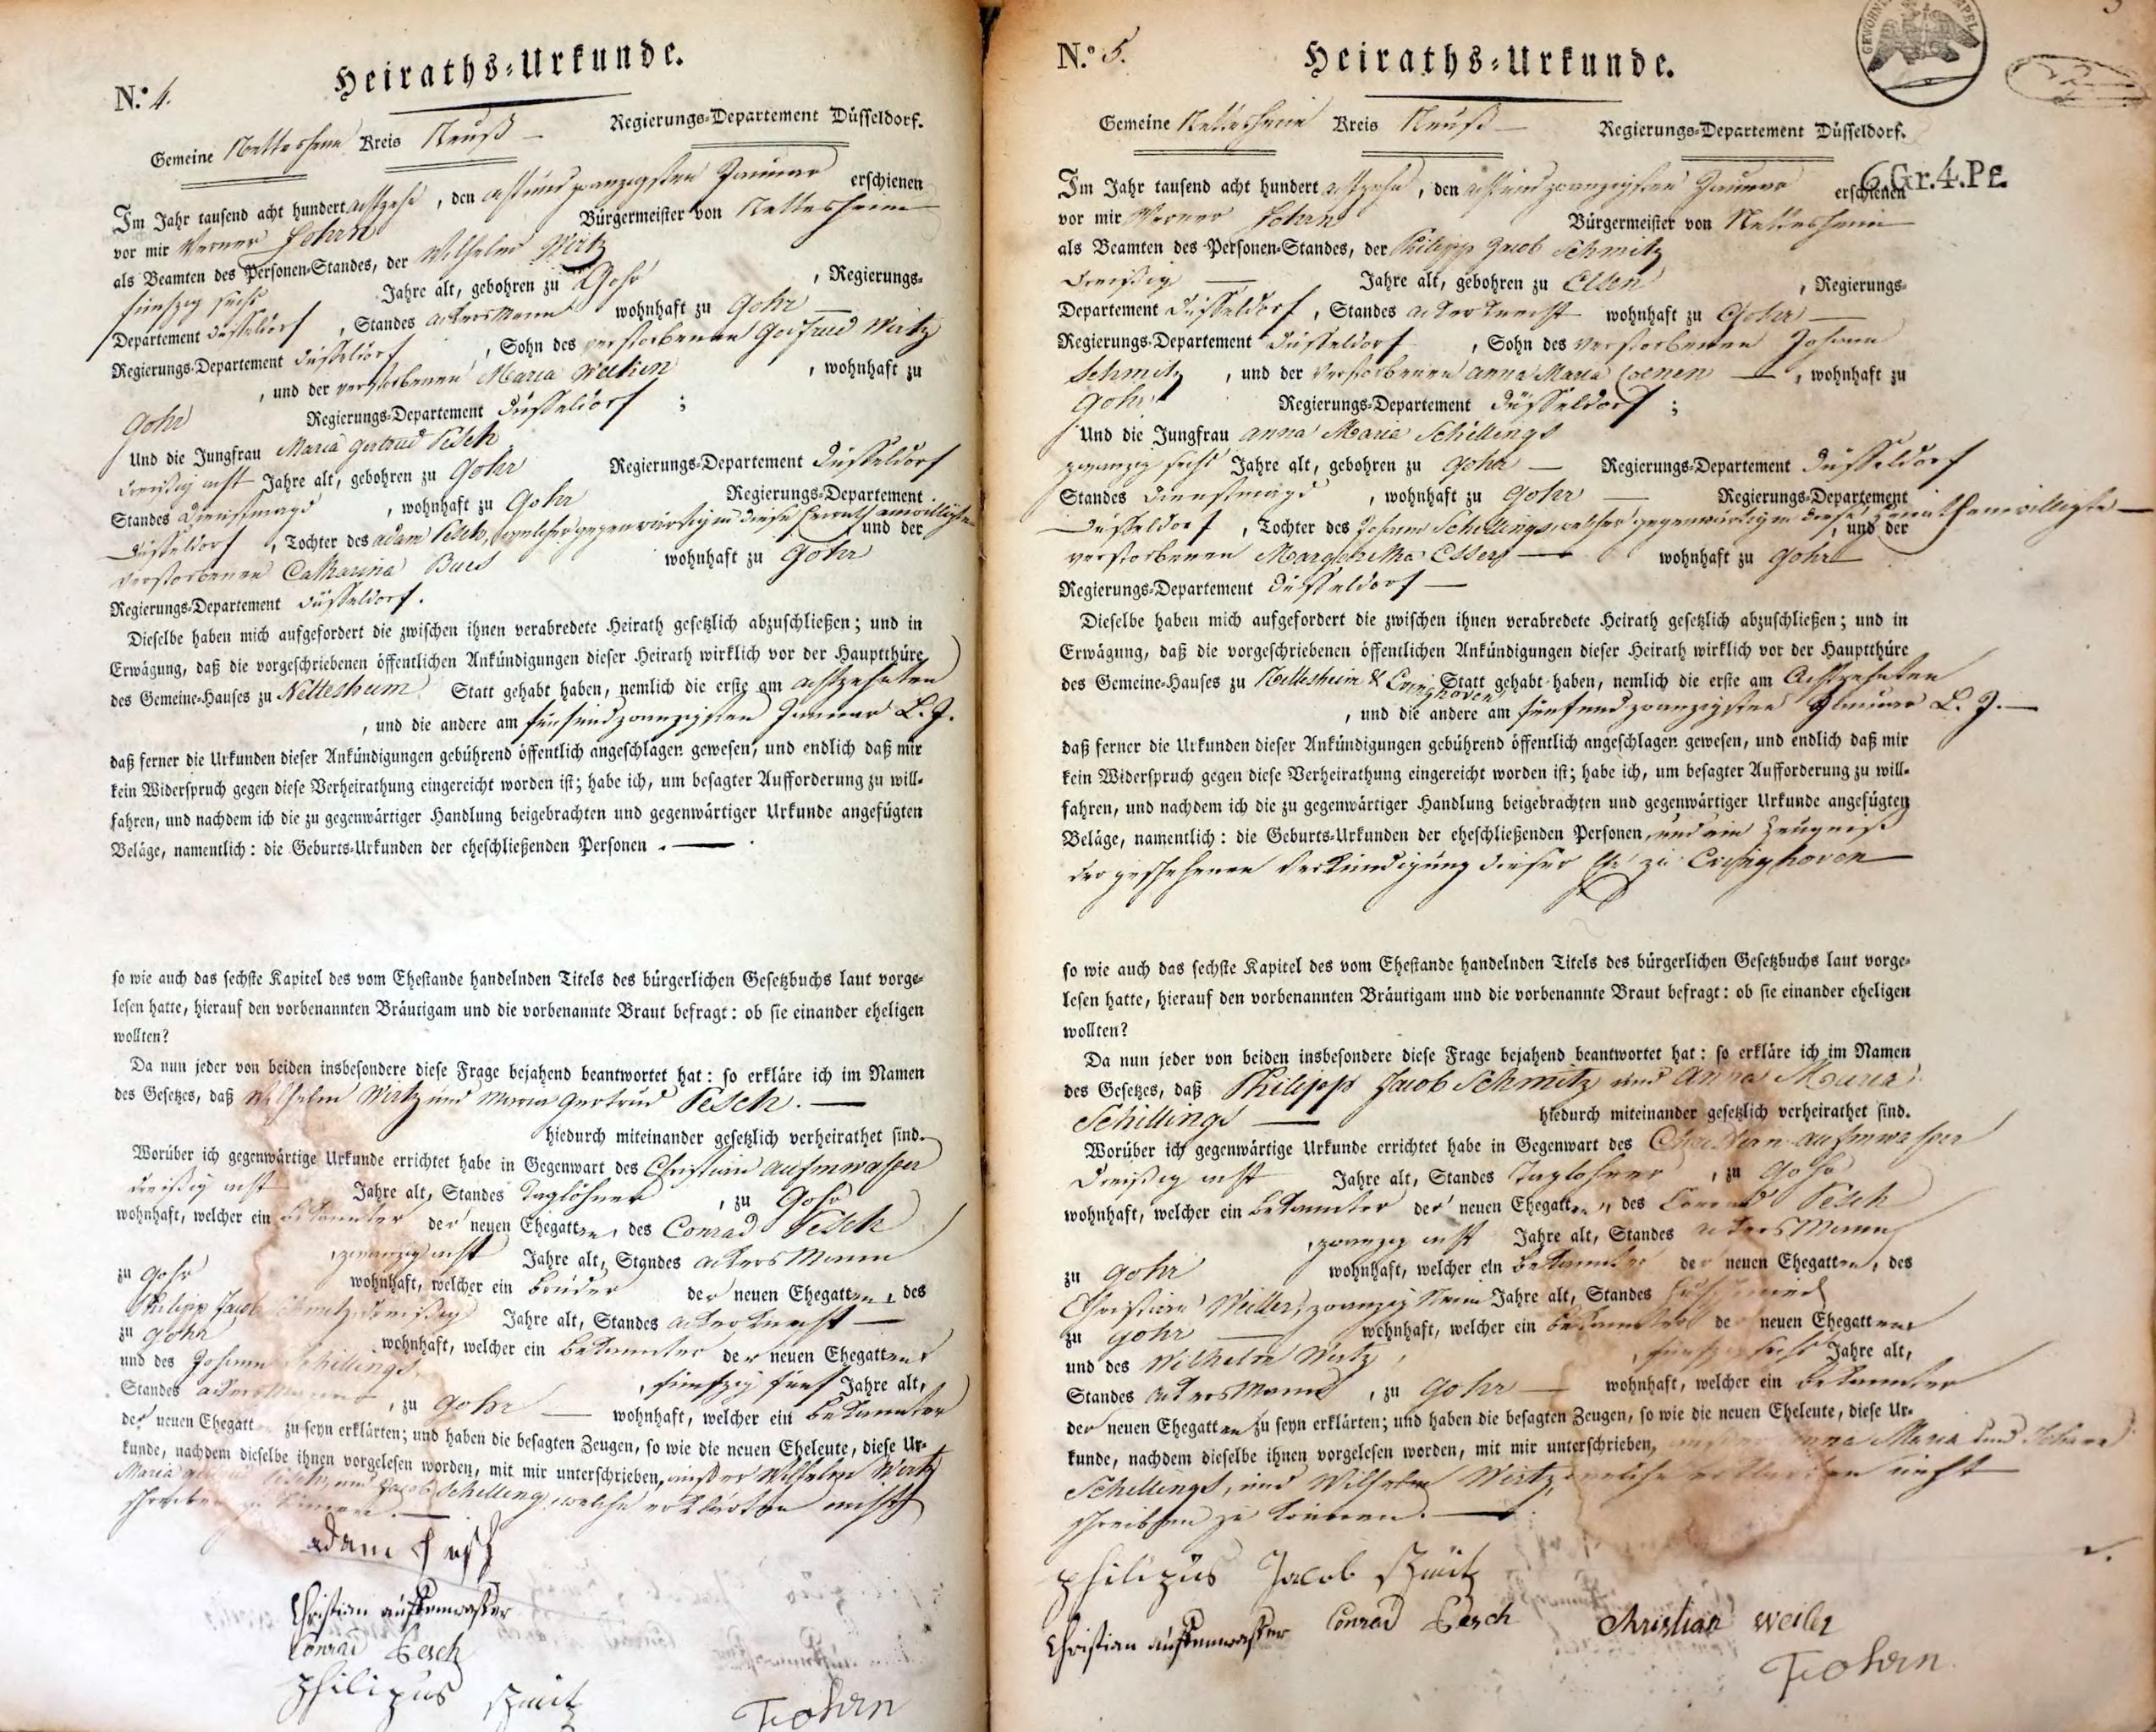 Heiraths-Urkunde.
N.º 4.
Gemeine Nettesheim Kreis Neuß Regierungs-Departement Düsseldorf.
Im Jahr tausend acht hundert achtzehn, den achtundzwanzigsten Januar erschienen
vor mir Werner Bürgermeister von Nettesheim
als Beamten des Personen-Standes, der Wilhelm Wirtz
fünfzig sechs Jahre alt, gebohren zu Gohr, Regierungs-
Departement Düsseldorf, Standes Ackersmann wohnhaft zu Gohr
Regierungs-Departement Düsseldorf, Sohn des verstorbenen Godfried Wirtz
, und der verstorbenen Maria, wohnhaft zu
Gohr Regierungs-Departement Düsseldorf;
Und die Jungfrau Maria Gertrud Pesch
dreißig acht Jahre alt, gebohren zu Gohr Regierungs-Departement Düsseldorf
Standes Dienstmagd, wohnhaft zu Gohr Regierungs-Departement
Düsseldorf, Tochter des Adam Pesch, welcher gegenwärtig in diese Heirath einwilligte und der
verstorbenen Catharina wohnhaft zu Gohr
Regierungs-Departement Düsseldorf.
Dieselbe haben mich aufgefordert die zwischen ihnen verabredete Heirath gesetzlich abzuschließen; und in
Erwägung, daß die vorgeschriebenen öffentlichen Ankündigungen dieser Heirath wirklich vor der Hauptthüre
des Gemeine-Hauses zu Nettesheim Statt gehabt haben, nemlich die erste am achtzehnten
, und die andere am fünfundzwanzigsten Januar L. J.
daß ferner die Urkunden dieser Ankündigungen gebührend öffentlich angeschlagen gewesen, und endlich daß mir
kein Widerspruch gegen diese Verheirathung eingereicht worden ist; habe ich, um besagter Aufforderung zu will-
fahren, und nachdem ich die zu gegenwärtiger Handlung beigebrachten und gegenwärtiger Urkunde angefügten
Beläge, namentlich: die Geburts-Urkunden der eheschließenden Personen.
so wie auch das sechste Kapitel des vom Ehestande handelnden Titels des bürgerlichen Gesetzbuchs laut vorge-
lesen hatte, hierauf den vorbenannten Bräutigam und die vorbenannte Braut befragt: ob sie einander eheligen
wollten?
Da nun jeder von beiden insbesondere diese Frage bejahend beantwortet hat: so erkläre ich im Namen
des Gesetzes, daß Wilhelm Wirtz und Maria Gertrud Pesch.
hiedurch miteinander gesetzlich verheirathet sind.
Worüber ich gegenwärtige Urkunde errichtet habe in Gegenwart des Christian Aufmwasser
dreißig acht Jahre alt, Standes Taglöhner, zu Gohr
wohnhaft, welcher ein bekannter der neuen Ehegatten, des Conrad Pesch
zwanzig acht Jahre alt, Standes Ackersmann
zu Gohr wohnhaft, welcher ein Bruder der neuen Ehegatten, des
Philipp Jacob Schmitz dreißig Jahre alt, Standes Ackerknecht
zu Gohr wohnhaft, welcher ein bekannter der neuen Ehegatten
und des Johann Schillings, fünfzig fünf Jahre alt,
Standes Ackersmann, zu Gohr wohnhaft, welcher ein bekannter
der neuen Ehegatt zu seyn erklärten; und haben die besagten Zeugen, so wie die neuen Eheleute, diese Ur-
kunde, nachdem dieselbe ihnen vorgelesen worden, mit mir unterschrieben, außer Wilhelm Wirtz
Maria Gertrud Pesch, und Jacob Schilling, welche erklärten nicht
schreiben zu können.
Adam Pesch
Christian auffemwasser
Conrad Pesch
Philipus Schmitz
Heiraths-Urkunde.
N.º 5.
Gemeine Nettesheim Kreis Neuß Regierungs-Departement Düsseldorf.
6 Gr. 4. Pf.
Im Jahr tausend acht hundert achtzehn, den achtundzwanzigsten Januar erschienen
vor mir Werner Bürgermeister von Nettesheim
als Beamten des Personen-Standes, der Philipp Jacob Schmitz
dreißig Jahre alt, gebohren zu Elsen, Regierungs-
Departement Düsseldorf, Standes Ackerknecht wohnhaft zu Gohr
Regierungs-Departement Düsseldorf, Sohn des verstorbenen Johann
Schmitz, und der verstorbenen Anna Maria Coenen, wohnhaft zu
Gohr Regierungs-Departement Düsseldorf;
Und die Jungfrau Anna Maria Schillings
zwanzig sechs Jahre alt, gebohren zu Gohr Regierungs-Departement Düsseldorf
Standes Dienstmagd, wohnhaft zu Gohr Regierungs-Departement
Düsseldorf, Tochter des Johann Schillings, welcher gegenwärtig in diese Heirath einwilligte, und der
verstorbenen Margaretha Essers wohnhaft zu Gohr
Regierungs-Departement Düsseldorf
Dieselbe haben mich aufgefordert die zwischen ihnen verabredete Heirath gesetzlich abzuschließen; und in
Erwägung, daß die vorgeschriebenen öffentlichen Ankündigungen dieser Heirath wirklich vor der Hauptthüre
des Gemeine-Hauses zu Nettesheim & Evinghoven Statt gehabt haben, nemlich die erste am Achtzehnten
, und die andere am fünfundzwanzigsten Januar L. J.
daß ferner die Urkunden dieser Ankündigungen gebührend öffentlich angeschlagen gewesen, und endlich daß mir
kein Widerspruch gegen diese Verheirathung eingereicht worden ist; habe ich, um besagter Aufforderung zu will-
fahren, und nachdem ich die zu gegenwärtiger Handlung beigebrachten und gegenwärtiger Urkunde angefügten
Beläge, namentlich: die Geburts-Urkunden der eheschließenden Personen, und ein Zeugniß
der geschehenen Verkündigung dieser Ehe zu Evinghoven
so wie auch das sechste Kapitel des vom Ehestande handelnden Titels des bürgerlichen Gesetzbuchs laut vorge-
lesen hatte, hierauf den vorbenannten Bräutigam und die vorbenannte Braut befragt: ob sie einander eheligen
wollten?
Da nun jeder von beiden insbesondere diese Frage bejahend beantwortet hat: so erkläre ich im Namen
des Gesetzes, daß Philipp Jacob Schmitz und Anna Maria
Schillings hiedurch miteinander gesetzlich verheirathet sind.
Worüber ich gegenwärtige Urkunde errichtet habe in Gegenwart des Christian Aufmwasser
dreißig acht Jahre alt, Standes Taglöhner, zu Gohr
wohnhaft, welcher ein bekannter der neuen Ehegatten, des Conrad Pesch
, zwanzig acht Jahre alt, Standes Ackersmann
zu Gohr wohnhaft, welcher ein bekannter der neuen Ehegatten, des
Christian Weiller, zwanzig neun Jahre alt, Standes Hufschmied
zu Gohr wohnhaft, welcher ein bekannter der neuen Ehegatten
und des Wilhelm Wirtz, fünfzig sechs Jahre alt,
Standes Ackersmann, zu Gohr wohnhaft, welcher ein bekannter
der neuen Ehegatten zu seyn erklärten; und haben die besagten Zeugen, so wie die neuen Eheleute, diese Ur-
kunde, nachdem dieselbe ihnen vorgelesen worden, mit mir unterschrieben, außer Anna Maria und Johann
Schillings, und Wilhelm Wirtz, welche erklärten nicht
schreiben zu können.
Philipus Jacob Schmitz
Christian auffemwasser Conrad Pesch Christian Weiler